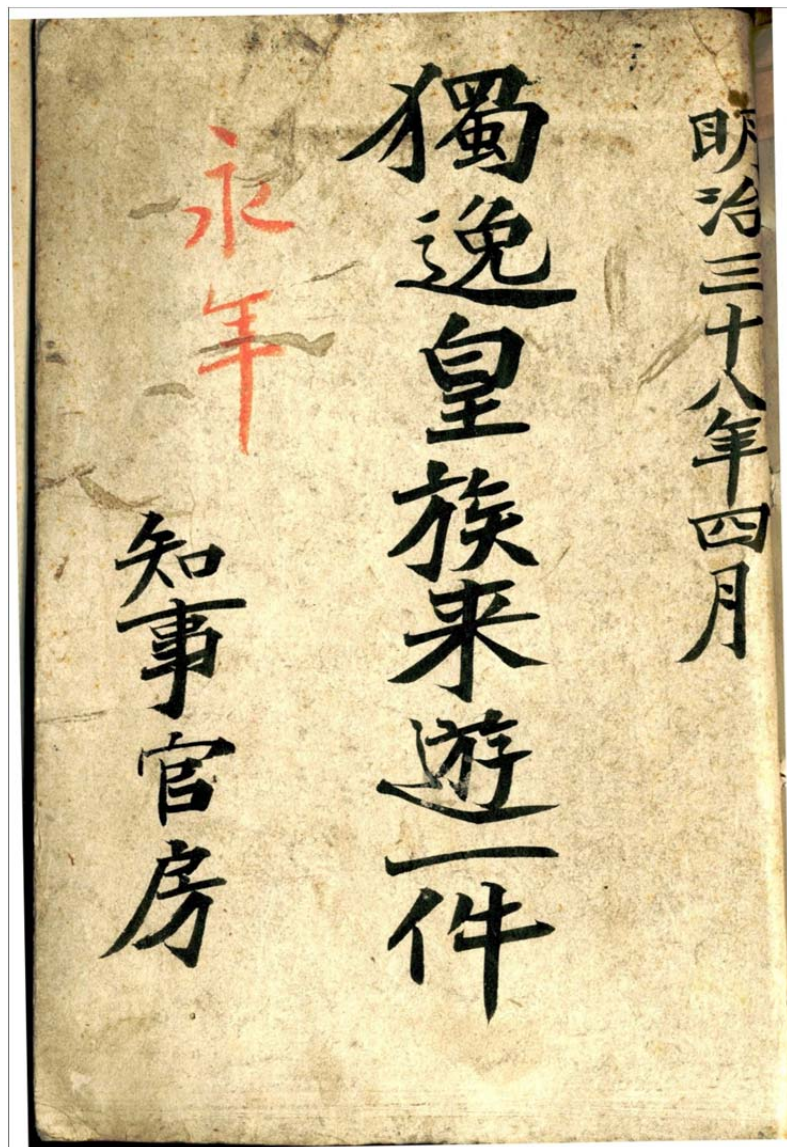 明治三十八年四月
獨逸皇族来遊一件
永年
知事官房